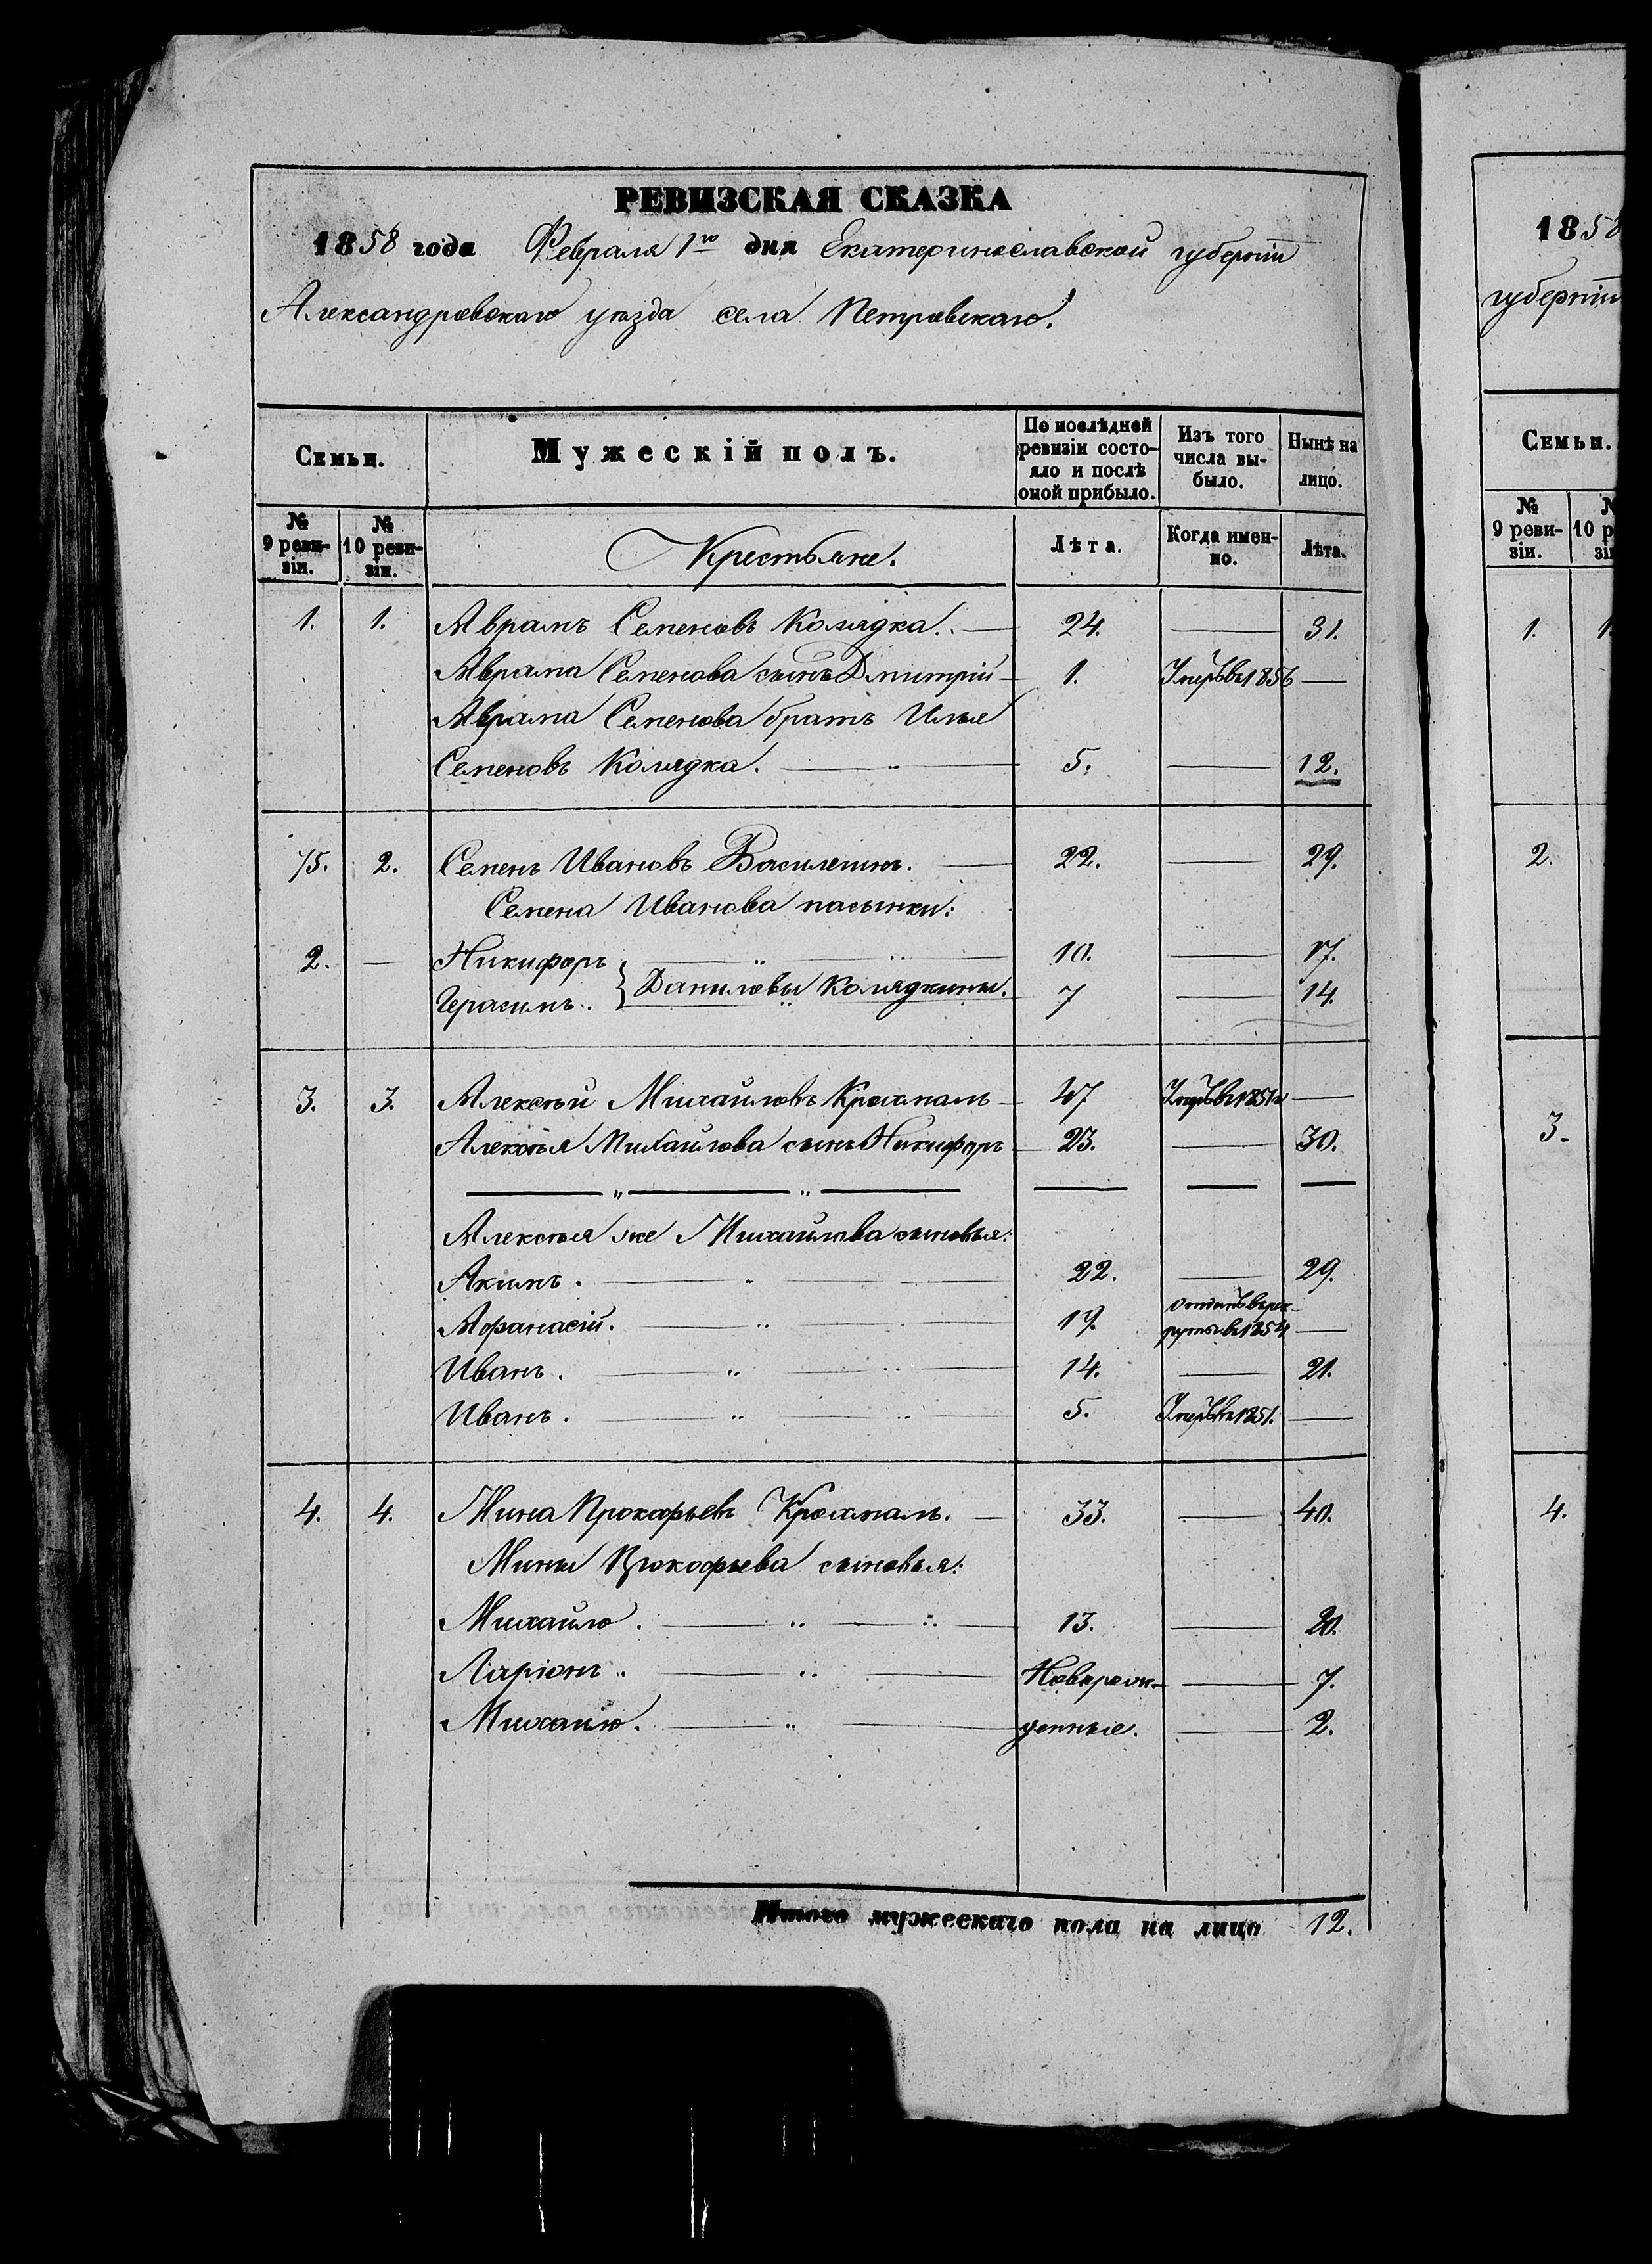 РЕВИЗСКАЯ СКАЗКА
1858 года Февраля 1го дня Екатеринославской губернiи
Александровскаго уѣзда села Петровскаго.
Семьи. Мужескiй полъ. По послѣдней ревизiи состояло и послѣ оной прибыло. Изъ того числа выбыло. Нынѣ на лицо.
№ 9 ревизiи. № 10 ревизiи. Крестьяне. Лѣта. Когда именно. Лѣта.
1. 1. Аврамъ Семеновъ Колядка. 24. — 31.
Аврама Семенова сынъ Дмитрiй 1. Умеръ въ 1856 —
Аврама Семенова братъ Илья
Семеновъ Колядка. 5. — 12.
75. 2. Семенъ Ивановъ 22. — 29.
Семена Иванова пасынки:
2. — Никифоръ 10. — 17.
Даниловы Колядкины.
Герасимъ. 7 — 14.
3. 3. Алексѣй Михайловъ Крохмаль 47 Умеръ въ —
Алексѣя Михайлова сынъ Никифоръ 23. — 30.
Алексѣя же Михайлова сыновья:
Акимъ. 22. — 29.
Афанасiй. 19. Отданъ въ рекруты въ 1854 —
Иванъ. 14. — 21.
Иванъ. 5. Умеръ въ 1851. —
4. 4. Мина Прокофьевъ Крохмаль. 33. — 40.
Мины Прокофьева сыновья:
Михайло. 13. — 20.
Ларiонъ. Новорож- — 7.
Михайло. денные. — 2.
Итого мужескаго пола на лицо 12.
1858
губернiи
Семьи.
№ 9 ревизiи.
1.
2.
3.
4.